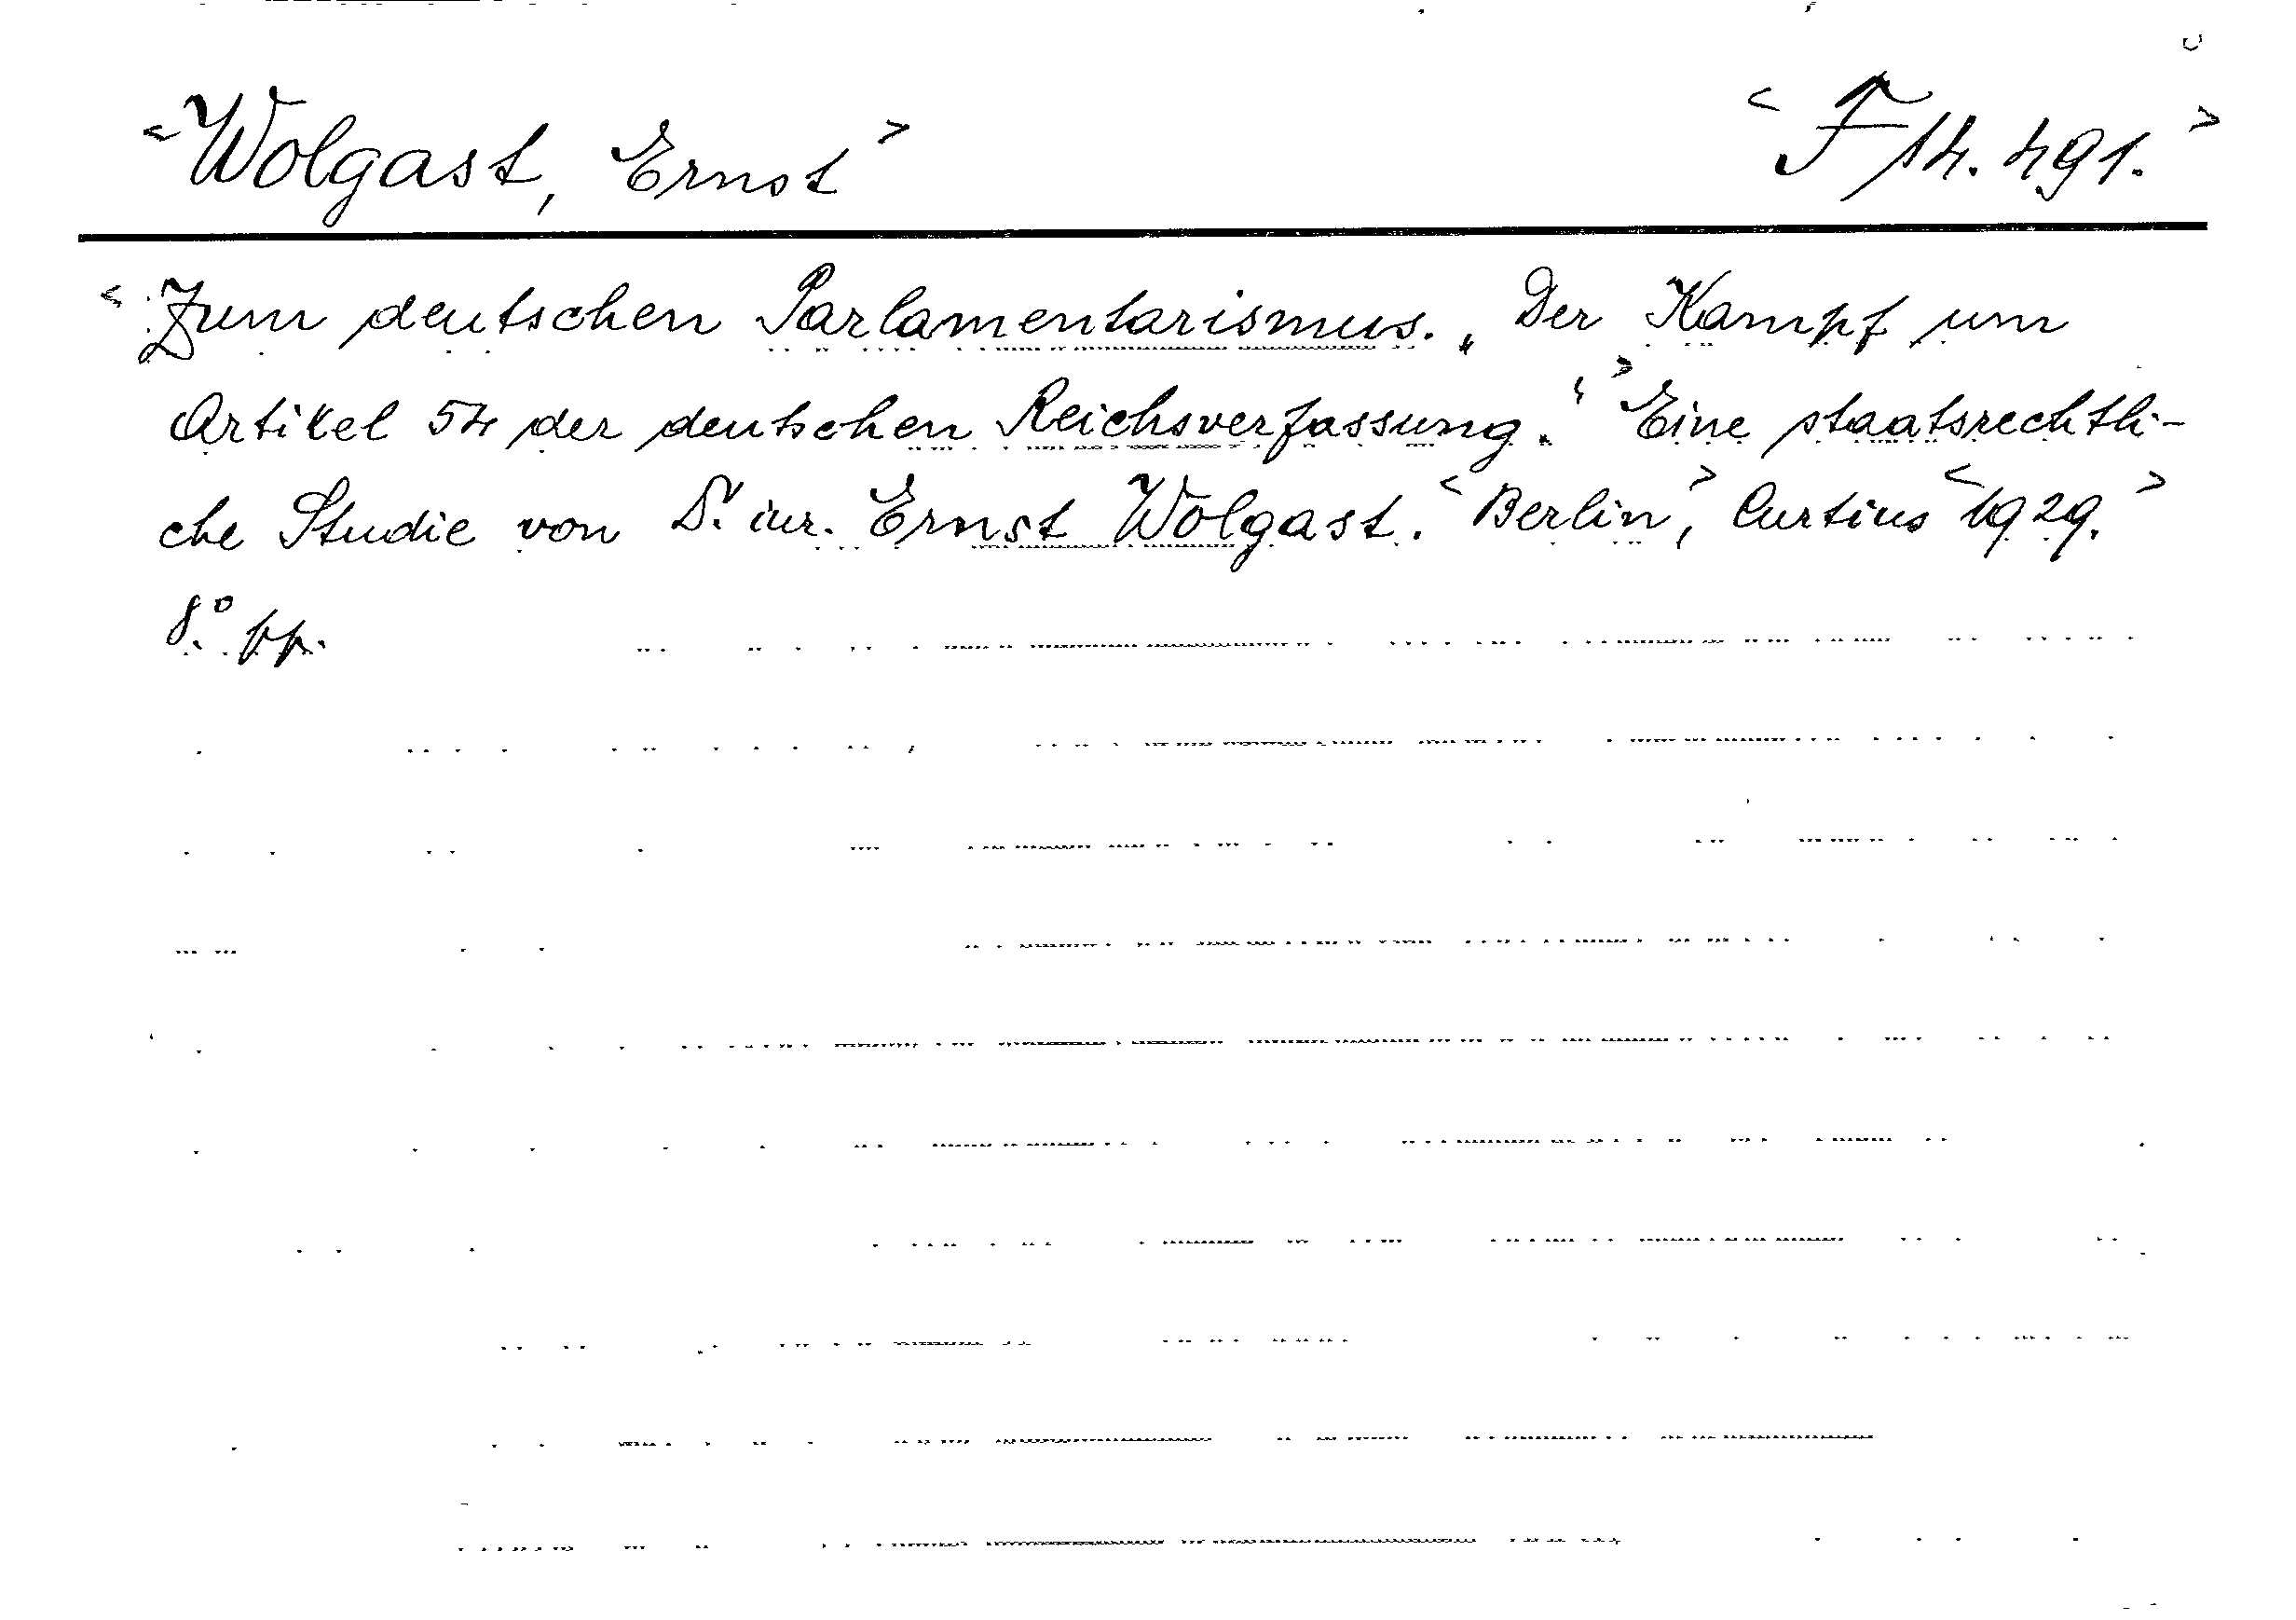 <Wolgast, Ernst> <F 14.491.>
<Zum deutschen Parlamentarismus. „Der Kampf um
Artikel 54 der deutschen Reichsverfassung.“> Eine staatsrechtli-
che Studie von Dr. iur. Ernst Wolgast. <Berlin>, Curtius <1929.>
8.° pp.